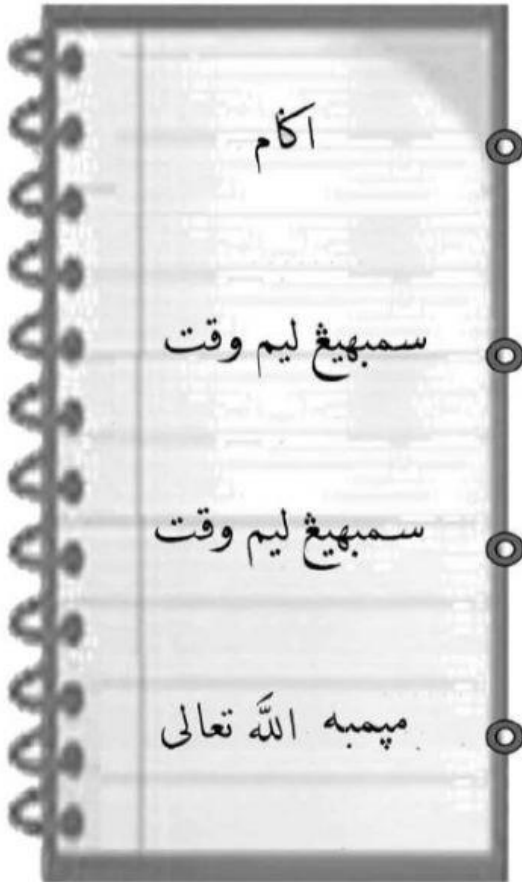 اݢام
سمبهيڠ ليم وقت
سمبهيڠ ليم وقت
مپمبه اللّه تعالى